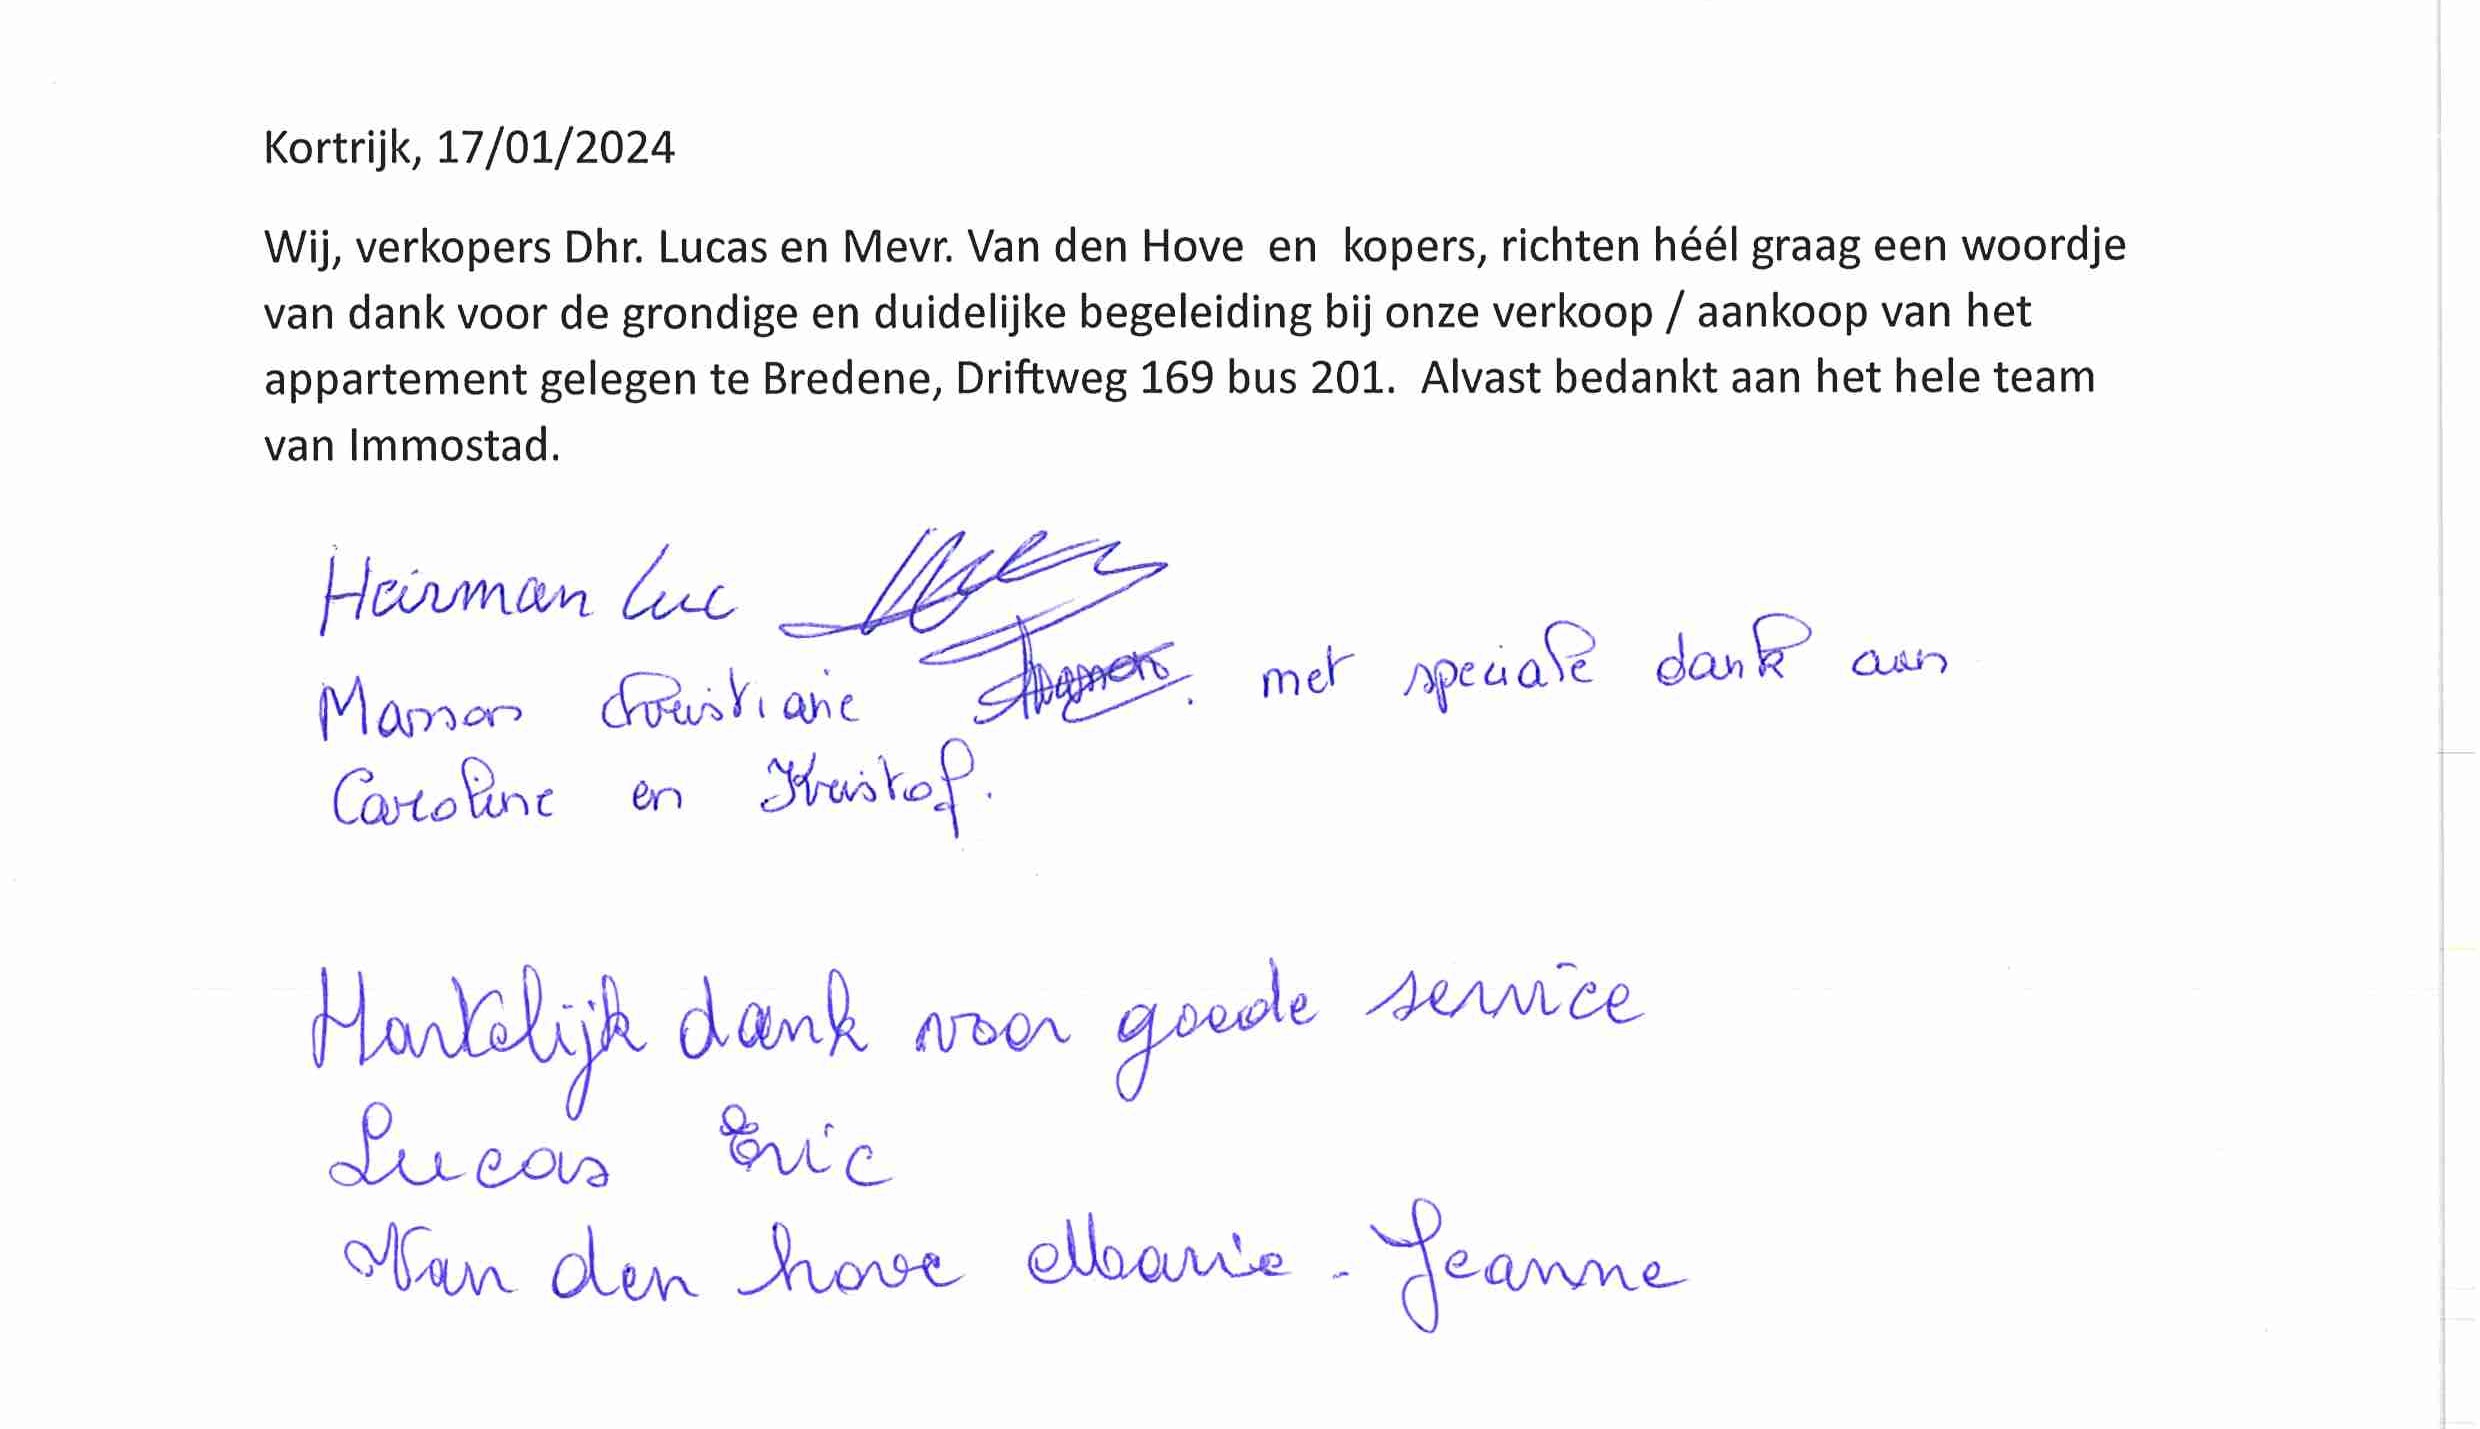 Kortrijk, 17/01/2024
Wij, verkopers Dhr. Lucas en Mevr. Van den Hove en kopers, richten héél graag een woordje
van dank voor de grondige en duidelijke begeleiding bij onze verkoop / aankoop van het
appartement gelegen te Bredene, Driftweg 169 bus 201. Alvast bedankt aan het hele team
van Immostad.
Heirman Luc
Masson Christiane met speciale dank aan
Caroline en Kristof.
Hartelijk dank voor goede service
Lucas Eric
Van den hove Marie - Jeanne